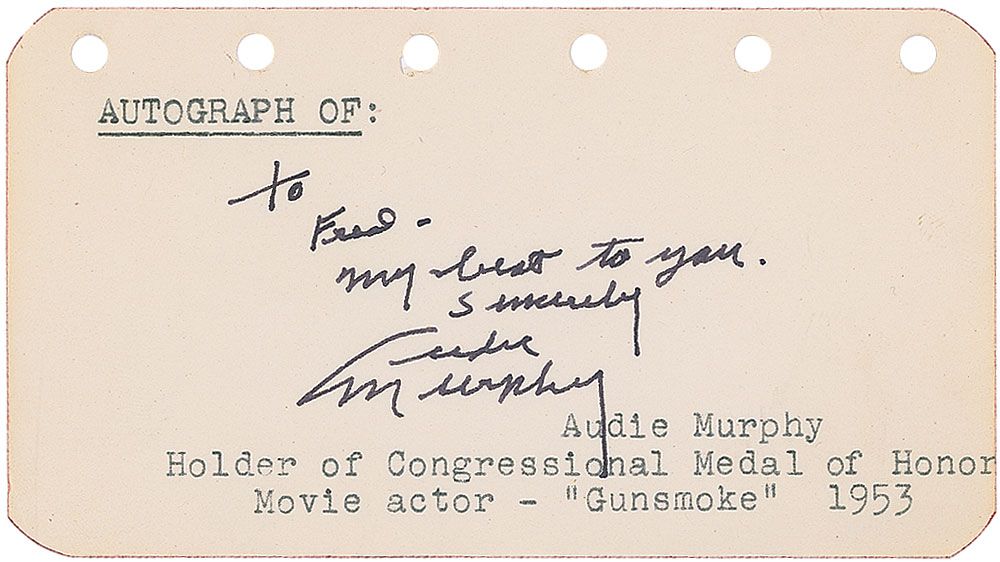 AUTOGRAPH OF:
To
Fred -
My best to you.
Sincerely
Audie
Murphy
Audie Murphy
Holder of Congressional Medal of Honor
Movie actor - "Gunsmoke" 1953